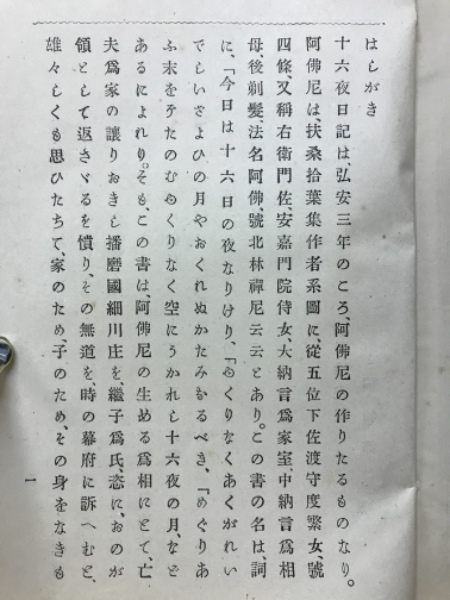 はしがき
十六夜日記は、弘安三年のころ、阿佛尼の作りたるものなり。
阿佛尼は、扶桑拾葉集作者系圖に、從五位下佐渡守度繁女、號
四條、又稱右衛門佐、安嘉門院侍女、大納言爲家室、中納言爲相
母、後剃髮、法名阿佛、號北林禪尼云云とあり。この書の名は、詞
に、「今日は十六日の夜なりけり、「ゆくりなくあくがれい
でしいさよひの月やおくれぬかたみなるべき、「めぐりあ
ふ末をぞたのむゆくりなく空にうかれし十六夜の月、など
あるによれり。そも、この書は、阿佛尼の生める爲相にとて、亡
夫爲家の讓りおきし播磨國細川庄を、繼子爲氏、恣に、おのが
領として返さゞるを憤り、その無道を、時の幕府に訴へむと、
雄々しくも思ひたちて、家のため、子のため、その身をなきも
一